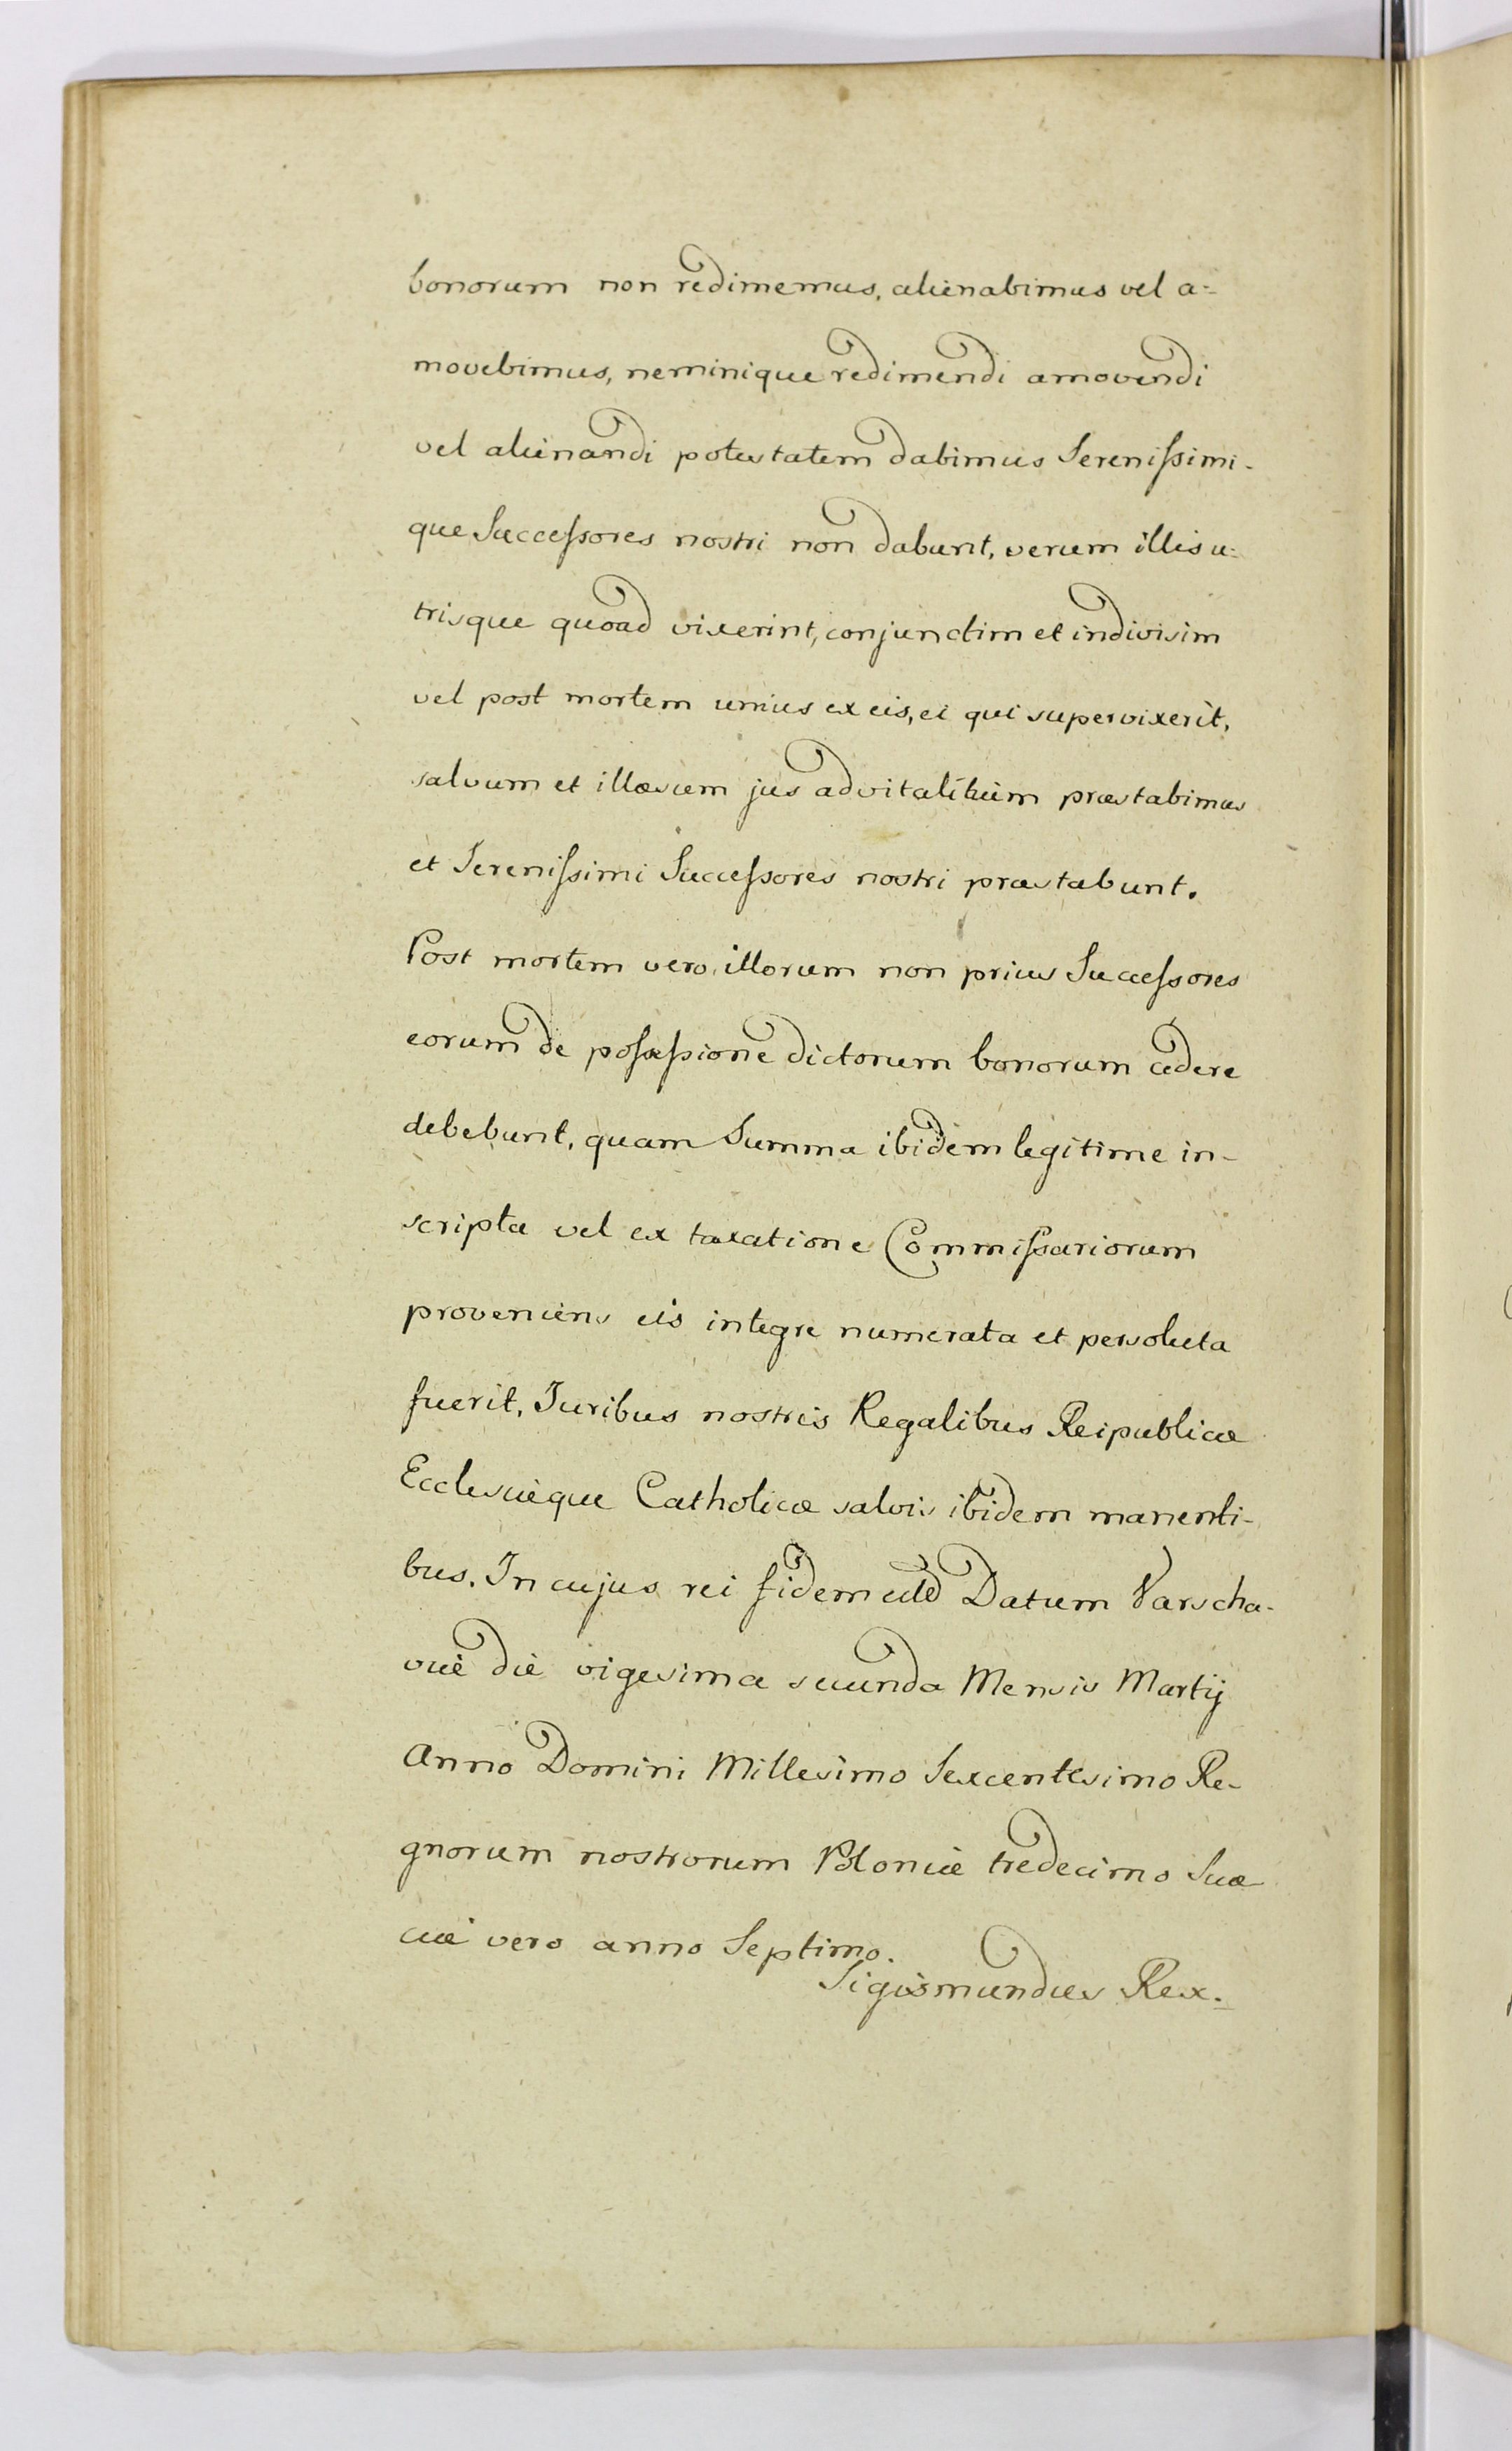 bonorum non redimemus, alienabimus vel a=
movebimus, neminique redimendi amovendi
vel alienandi potestatem dabimus Serenissimi-
que Successores nostri non dabunt, verum illis u=
trisque quoad vixerint, conjunctim et indivisim
vel post mortem unius ex eis, ei qui supervixerit,
salvum et illæsum jus advitalitium præstabimus
et Serenissimi Successores nostri præstabunt.
Post mortem vero illorum non prius Successores
eorum de possessione dictorum bonorum cedere
debebunt, quam Summa ibidem legitime in-
scripta vel ex taxatione Commissariorum
proveniens eis integre numerata et persoluta
fuerit, Juribus nostris Regalibus Reipublicæ
Ecclesiæque Catholicæ salvis ibidem manenti-
bus. In cujus rei fidem Datum Varscha-
viæ die vigesima secunda Mensis Martij
Anno Domini Millesimo Sexcentesimo Re-
gnorum nostrorum Poloniæ tredecimo Suæ
ciæ vero anno Septimo.
Sigismundus Rex.